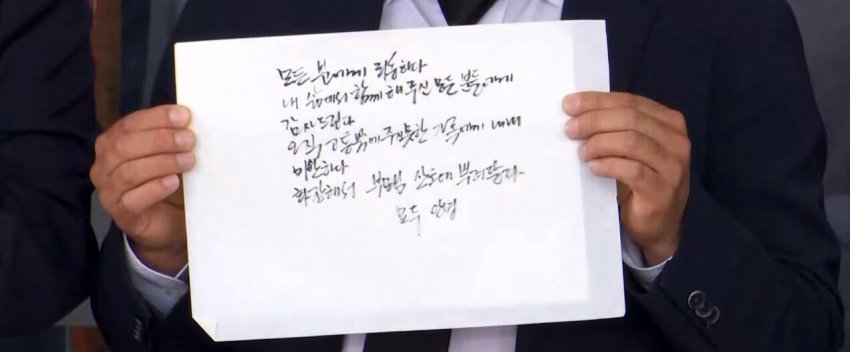 모든 분에게 죄송하다
내 삶에서 함께 해 주신 모든 분들에게
감사드린다
오직, 고통밖에 주지못한 가족에게 내내
미안하다
화장해서 부모님 산소에 뿌려달라.
모두 안녕